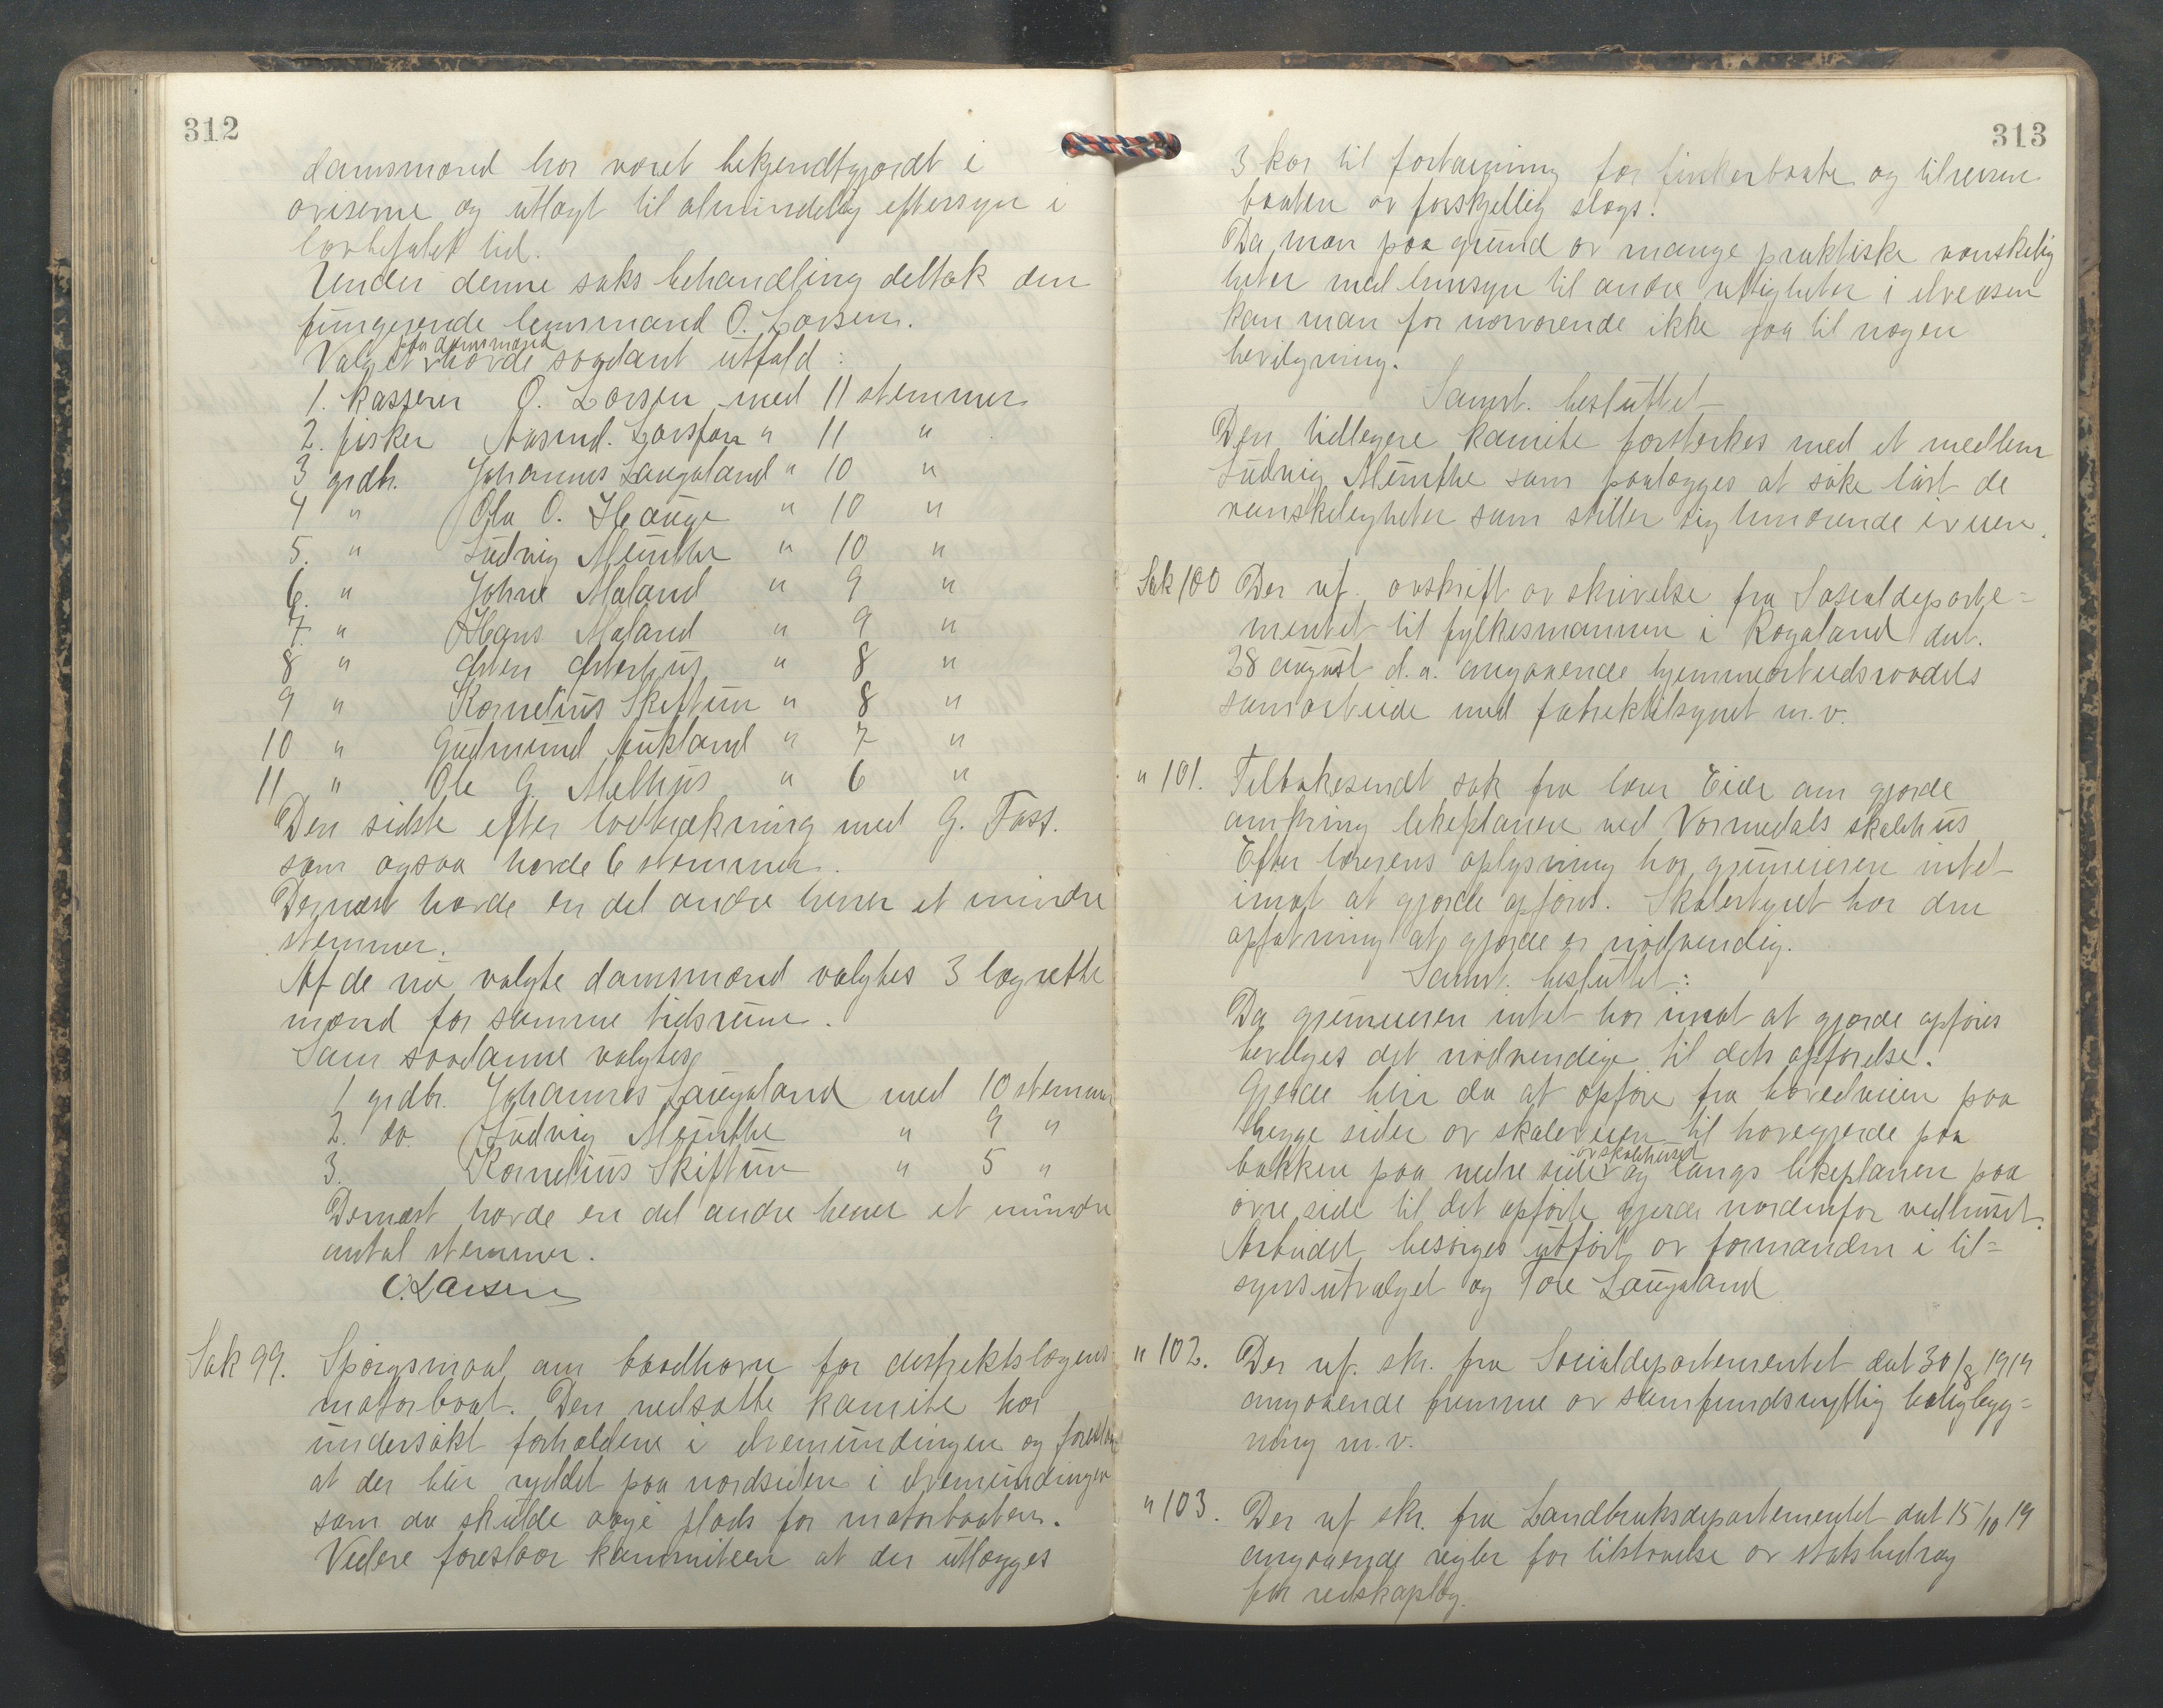 312
domsmænd har været bekjendtgjordt i
aviserne og utlagt til almindelig eftersyn i
lovbefalet tid.
Under denne saks behandling deltok den
fungerende lensmand O. Larsen.
paa domsmænd
Valget havde saadant utfald:
1. kasserer O. Larsen med 11 stemmer
2. fisker Aasmd. Larsson " 11 "
3 grdbr. Johannes Laugaland " 10 "
4 " Ola O. Hauge " 10 "
5. " Ludvig Munthe " 10 "
6. " Johne Maland " 9 "
7. " Hans Maland " 9 "
8 " " 8 "
9 " Kornelius Skiftun " 8 "
10 " Gudmund Aukland " 7 "
11 " Ole G. Melhus " 6 "
Den sidste efter lodtrækning med G. Foss.
som ogsaa havde 6 stemmer.
Dernæst havde en del andre herrer et mindre
stemmer.
Af de nu valgte domsmænd valgtes 3 lagrette
mænd for samme tidsrum.
Som saadanne valgtes
1 grdbr. Johannes Laugaland med 10 stemmer
2. do. Ludvig Munthe " 9 "
3. Kornelius Skiftun " 5 "
Dernæst havde en del andre herrer et mindre
antal stemmer.
O. Larsen
Sak 99. Spørgsmaal om baadhavn for distriktslægens
motorboat. Den nedsatte komite har
undersøkt forholdene i elvemundingen og foreslaar
at der blir ryddet paa nordsiden i elvemundingen
som da skulde avgi plads for motorbaaten.
Videre foreslaar kommiteen at der utlægges
313
3 kar til fortøining for baate og
baaten av forskjellig slags.
Da man paa grund av mange praktiske vanskelig
heter med hensyn til andre rettigheter i elveosen
kan man for nærværende ikke gaa til nogen
bevilgning.
Samst. besluttet
Den tidligere komite forsterkes med et medlem
Ludvig Munthe som paalægges at søke løst de
vanskeligheter som stiller sig hindrende iveien.
Sak 100 Der ref. avskrift av skrivelse fra Sosialdeparte=
mentet til fylkesmannen i Rogaland dat.
28 august d.a. angaaende hjemmearbeidsraadets
samarbeide med fabriktilsynet m.v.
" 101. Tilbakesendt sak fra lærer Eide om gjerde
omkring lekeplanen ved Vormedals skolehus
Efter lærerens oplysning har gruneieren intet
imot at gjerde opføres. Skolestyret har den
opfatning at gjerde er nødvendig.
Samst. besluttet:
Da gruneieren intet har imot at gjerde opføres
bevilges det nødvendige til dets opførelse.
Gjerde blir da at opføre fra hovedveien paa
begge sider av skoleveien til havegjerde paa
av skolehuset
bakken paa nedre side og langs lekeplanen paa
øvre side til det opførte gjerde nordenfor vedhuset.
Arbeidet besørges utført av formanden i til=
synsutvalget og Tore Laugaland
" 102. Der ref. skr. fra Socialdepartementet dat 30/8 1919
angaaende fremme av samfundsnyttig boligbyg=
ning m.v.
" 103. Der ref skr. fra Landbruksdepartementet dat 15/10 19
angaaende regler for tilstaaelse av statsbidrag
for redskaplag.